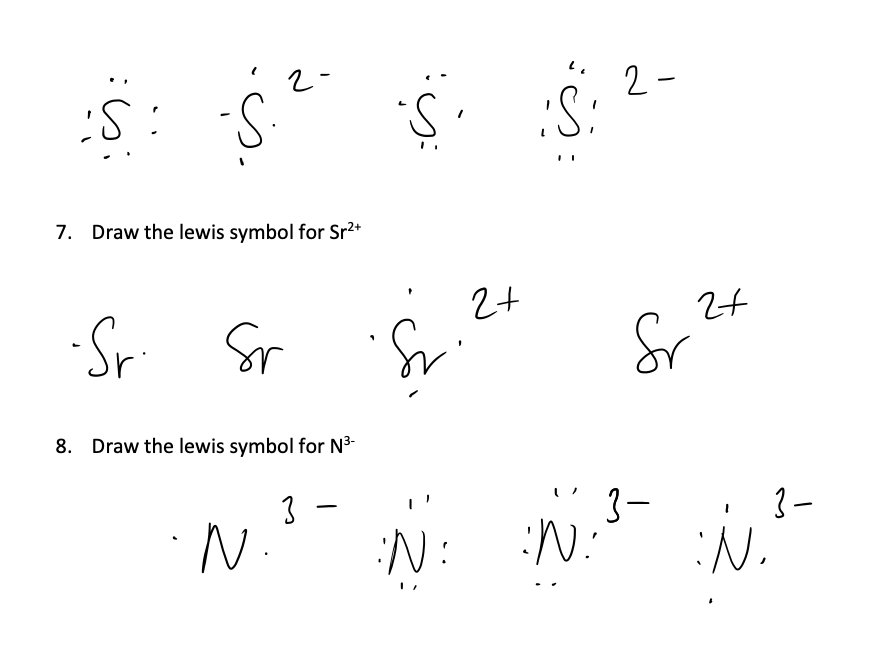 S S 2- S S 2-
7. Draw the lewis symbol for Sr2+
Sr Sr Sr 2+ Sr 2+
8. Draw the lewis symbol for N3-
N 3- N N 3- N 3-